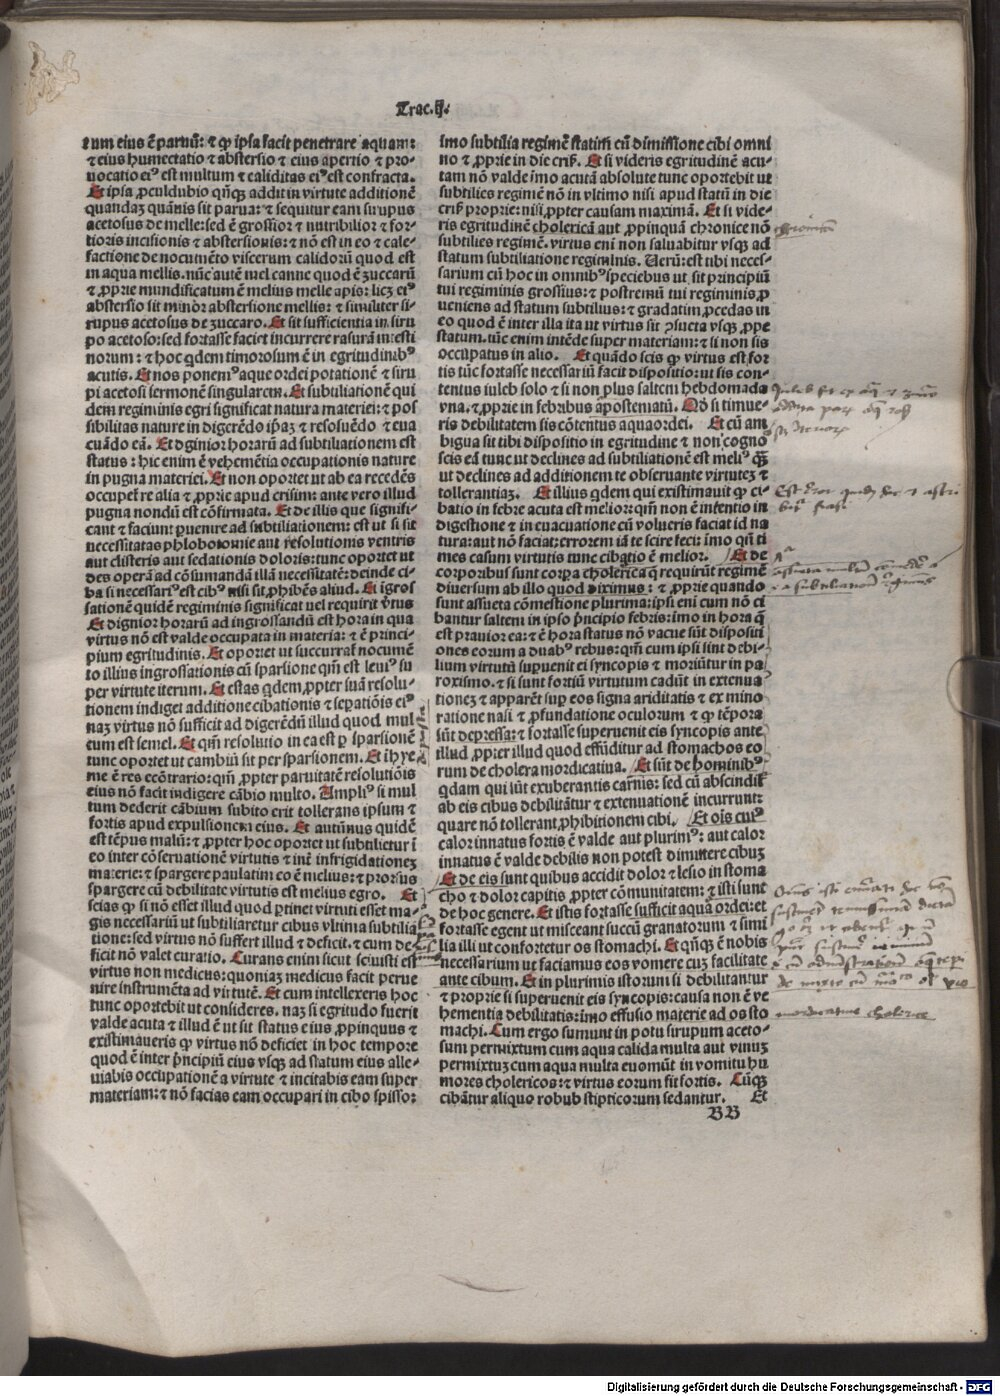 Trac.ij.
tum eius ē paruū: ⁊ ꝙ ipsa facit penetrare aquam:
⁊ eius humectatio ⁊ abstersio ⁊ eius apertio ⁊ pro-
uocatio ei⁹ est multum ⁊ caliditas ei⁹ est confracta.
Et ipsa ꝓculdubio qñqꝫ addit in virtute additionē
quandaꝫ quāuis sit parua: ⁊ sequitur eam sirupus
acetosus de melle: sed ē grossior ⁊ nutribilior ⁊ for-
tioris incisionis ⁊ abstersionis: ⁊ nō est in eo ⁊ cale-
factione de nocumēto viscerum calidorū quod est
in aqua mellis. nūc autē mel canne quod ē zuccarū
⁊ ꝓprie mundificatum ē melius melle apis: licꝫ ei⁹
abstersio sit minor abstersione mellis: ⁊ similiter si-
rupus acetosus de zuccaro. Et sit sufficientia in siru
po acetoso: sed fortasse faciet incurrere rasurā intesti
norum: ⁊ hoc qdem timorosum ē in egritudinib⁹
acutis. Et nos ponem⁹ aque ordei potationē ⁊ siru
pi acetosi sermonē singularem. Et subtiliationē qui
dem regiminis egri significat natura materiei: ⁊ pos
sibilitas nature in digerēdo ip̄aꝫ ⁊ resoluēdo ⁊ eua
cuādo eā. Et dignior horarū ad subtiliationem est
status: hic enim ē vehemētia occupationis nature
in pugna materiei. Et non oportet ut ab ea recedēs
occupet̄ re alia ⁊ ꝓprie apud crisim: ante vero illud
pugna nondū est cōfirmata. Et de illis que signifi-
cant ⁊ faciunt ꝑuenire ad subtiliationem: est ut si sit
necessitatas phlobotomie aut resolutionis ventris
aut clisteris aut sedationis doloris: tunc oportet ut
des operā ad cōsumandā illā necessitatē: deinde ci-
ba si necessari⁹ est cib⁹ nisi sit ꝓhibēs aliud. Et igros
sationē quidē regiminis significat uel requirit v̄tus
Et dignior horarū ad ingrossandū est hora in qua
virtus nō est valde occupata in materia: ⁊ ē princi-
pium egritudinis. Et oportet ut succurrat nocumē
to illius ingrossationis cū sparsione qm̄ est leui⁹ su
per virtute iterum. Et estas qdem ꝓpter suā resolu-
tionem indiget additione cibationis ⁊ sepatiōis ei⁹
naꝫ virtus nō sufficit ad digerēdū illud quod mul
tum est semel. Et qm̄ resolutio in ea est ꝑ sparsionē
tunc oportet ut cambiū sit per sparsionem. Et ī hye
me ē res ecōtrario: qm̄ ꝓpter paruitatē resolutiōis
eius nō facit indigere cābio multo. Ampli⁹ si mul
tum dederit cābium subito erit tollerans ipsum ⁊
fortis apud expulsionem eius. Et autūnus quidē
est tēpus malū: ⁊ ꝓpter hoc oportet ut subtilietur ī
eo inter cōseruationē virtutis ⁊ int̄ infrigidationeꝫ
materie: ⁊ spargere paulatim eo ē melius: ⁊ prorsus
spargere cū debilitate virtutis est melius egro. Et
scias ꝙ si nō esset illud quod ꝑtinet virtuti esset ma-
gis necessariū ut subtiliaretur cibus vltima subtilia
tione: sed virtus nō suffert illud ⁊ deficit. ⁊ cum de-
ficit nō valet curatio. Curans enim sicut sciuisti est
virtus non medicus: quoniaꝫ medicus facit perue
nire instrumēta ad virtutē. Et cum intellexeris hoc
tunc oportebit ut consideres. naꝫ si egritudo fuerit
valde acuta ⁊ illud ē ut sit status eius ꝓpinquus ⁊
existimaueris ꝙ virtus nō deficiet in hoc tempore
quod ē inter p̄ncipiū eius vsqꝫ ad statum eius alle-
uiabis occupationē a virtute ⁊ incitabis eam super
materiam: ⁊ nō facias eam occupari in cibo spisso:
imo subtilia regimē statim cū dimissione cibi omni
no ⁊ ꝓprie in die cris̄. Et si videris egritudinē acu-
tam nō valde imo acutā absolute tunc oportebit ut
subtilies regimē nō in vltimo nisi apud statū in die
cris̄ proprie: nisi ꝓpter causam maximā. Et si vide-
ris egritudinē cholericā aut ꝓpinquā chronice nō
subtilies regimē. virtus eni nō saluabitur vsqꝫ ad
statum subtiliatione regiminis. Uerū: est tibi neces-
sarium cū hoc in omnib⁹ speciebus ut sit principiū
tui regiminis grossius: ⁊ postremū tui regiminis ꝓ
ueniens ad statum subtilius: ⁊ gradatim ꝓcedas in
eo quod ē inter illa ita ut virtus sit ꝓsueta vsqꝫ ꝓpe
statum. tūc enim intēde super materiam: ⁊ si non sis
occupatus in alio. Et quādo scis ꝙ virtus est for
tis tūc fortasse necessariū faciet dispositio: ut sis con-
tentus iuleb solo ⁊ si non plus saltem hebdomada
vna. ⁊ ꝓprie in febribus apostematū. Qd̄ si timue-
ris debilitatem sis cōtentus aqua ordei. Et cū am
bigua sit tibi dispositio in egritudine ⁊ non cogno
scis eā tunc ut declines ad subtiliationē est meli⁹ qꝫ
ut declines ad additionem te obseruante virtuteꝫ ⁊
tollerantiaꝫ. Et illius qdem qui existimauit ꝙ ci-
batio in febre acuta est melior: qm̄ non ē intentio in
digestione ⁊ in euacuatione cū volueris faciat id na
tura: aut nō faciat: errorem iā te scire feci: imo qn̄ ti
mes casum virtutis tunc cibatio ē melior. Et de
corporibus sunt corpa cholerica q̄ requirūt regimē
diuersum ab illo quod diximus: ⁊ ꝓprie quando
sunt assueta cōmestione plurima: ipsi eni cum nō ci
bantur saltem in ipso p̄ncipio febris: imo in hora q̄
est prauior ea: ⁊ ē hora status nō vacue sūt dispositi
ones eorum a duab⁹ rebus: qm̄ cum ipsi sint debi-
lium virtutū supuenit ei syncopis ⁊ moriūtur in pa
roxismo. ⁊ si sunt fortiū virtutum cadūt in extenua
tioneꝫ ⁊ apparēt sup̄ eos signa ariditatis ⁊ ex mino
ratione nasi ⁊ ꝓfundatione oculorum ⁊ ꝙ tēpora
sūt depressa: ⁊ fortasse superuenit eis syncopis ante
illud ꝓpter illud quod effūditur ad stomachos eo
rum de cholera mordicatiua. Et sūt de hominib⁹
qdam qui sūt exuberantis carnis: sed cū abscindit̄
ab eis cibus debilitātur ⁊ extenuationē incurrunt:
quare nō tollerant ꝓhibitionem cibi. Et oīs cui⁹
calor innatus fortis ē valde aut plurim⁹: aut calor
innatus ē valde debilis non potest dimittere cibuꝫ
Et de eis sunt quibus accidit dolor ⁊ lesio in stoma
cho ⁊ dolor capitis ꝓpter cōmunitatem: ⁊ isti sunt
de hoc genere. Et istis fortasse sufficit aqua ordei: et
fortasse egent ut misceant succū granatorum ⁊ simi
lia illi ut confortetur os stomachi. Et qñqꝫ ē nobis
necessarium ut faciamus eos vomere cuꝫ facilitate
ante cibum. Et in plurimis istorum si debilitantur
⁊ proprie si superuenit eis syncopis: causa non ē ve
hementia debilitatis: imo effusio materie ad os sto
machi. Cum ergo sumunt in potu sirupum aceto-
sum permixtum cum aqua calida multa aut vinuꝫ
permixtuꝫ cum aqua multa euomūt in vomitu hu
mores cholericos: ⁊ virtus eorum fit fortis. Cūqꝫ
cibātur aliquo robub stipticorum sedantur. Et
BB
Digitalisierung gefördert durch die Deutsche Forschungsgemeinschaft - DFG